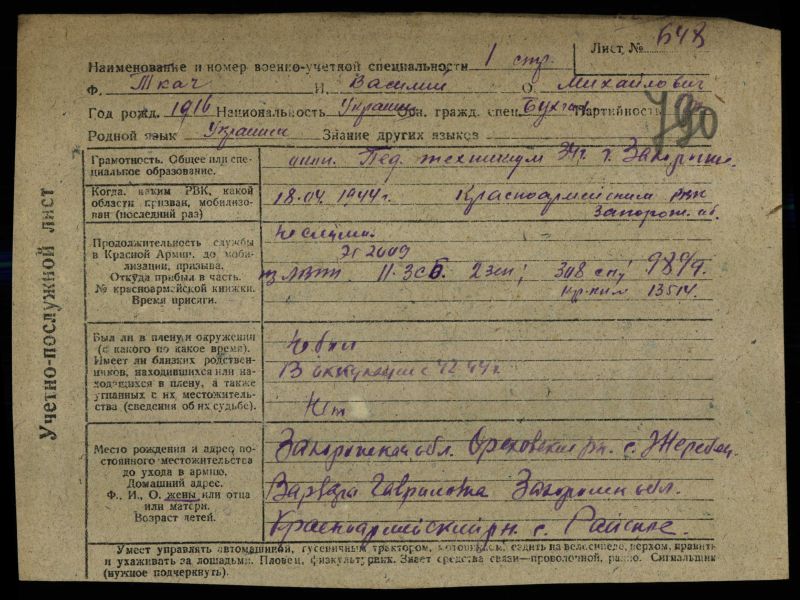 Лист № 648
Наименование и номер военно-учетной специальности 1 стр.
Ф. Ткач И. Василий О. Михайлович
Год рожд. 1916 Национальность Украин Осн. гражд. спец. Бухг Партийность
790
Родной язык Украинск Знание других языков
Учетно-послужной лист
Грамотность. Общее или специальное образование.
Пед. техникум 34г. г. Запорожье.
Когда, каким РВК, какой области призван, мобилизован (последний раз)
18.04.1944г. Красноармейским рвк
Запорож. об.
Продолжительность службы в Красной Армии, до мобилизации, призыва. Откуда прибыл в часть. № красноармейской книжки. Время присяги.
Не служил.
11. ЗСБ.
кр. кн. 13514.
Был ли в плену и окружении (с какого по какое время). Имеет ли близких родственников, находившихся или находящихся в плену, а также угнанных с их местожительства (сведения об их судьбе).
Не был
В оккупации с 42 44 г
Нет
Место рождения и адрес, постоянного местожительства до ухода в армию. Домашний адрес. Ф., И., О. жены или отца или матери. Возраст детей.
Запорожская обл. Ореховский рн. с. Жеребец.
Варвара Гавриловна Запорожск обл.
Красноармейский рн. с. Райское.
Умеет управлять автомашиной, гусеничным трактором, мотоциклом, ездить на велосипеде, верхом, править
и ухаживать за лошадьми. Пловец, физкультурник. Знает средства связи—проволочной, радио. Сигнальщик
(нужное подчеркнуть).